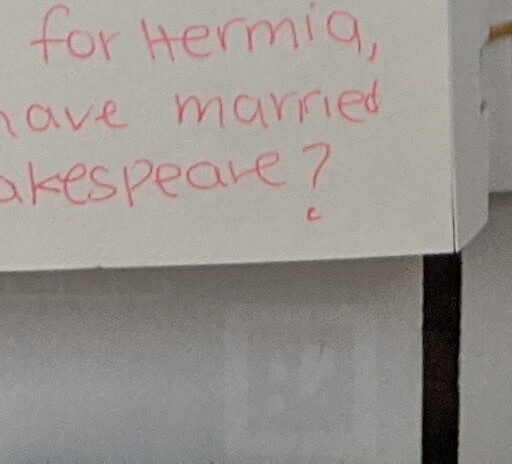 for Hermia,
have married
akespeare?